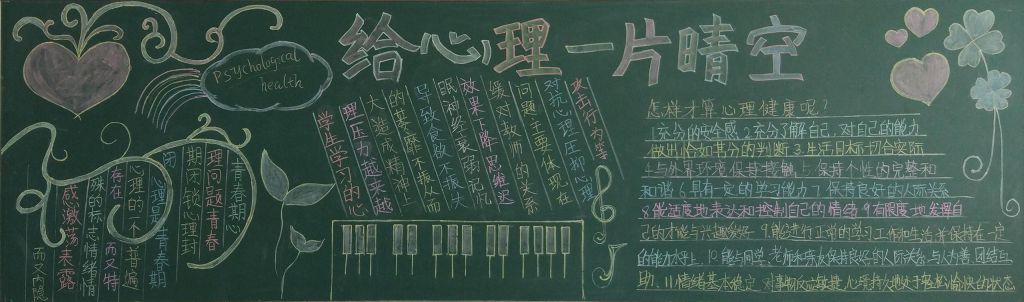 给心理一片晴空
psychological
health
青春期心
理问题青春
期闭锁心理封
闭心理是青春期
心理的一个普遍
存在而又特
殊的标志情绪情
感激荡未露
而又隐
学生学习的心
理压力越来越
大造成精神上
的萎靡不振从而
导致食欲不振失
眠神经衰弱记忆
效果下降思维迟
缓对教师的关系
问题主要体现在
对抗心理压抑心理
攻击行为等
怎样才算心理健康呢？
1.充分的安全感 2.充分了解自己，对自己的能力
做出恰如其分的判断 3.生活目标切合实际
4.与外界环境保持接触 5.保持个性的完整和
和谐 6.具有一定的学习能力 7.保持良好的人际关系
8.能适度地表达和控制自己的情绪 9有限度地发挥自
己的才能与兴趣爱好 9能进行正常的学习工作和生活并保持在一定
的能力水平上，10能与同学、老师和亲友保持良好的人际关系，与人为善，团结互
助、11情绪基本稳定，对事物反应敏捷，心境持久地处于轻松愉快的状态